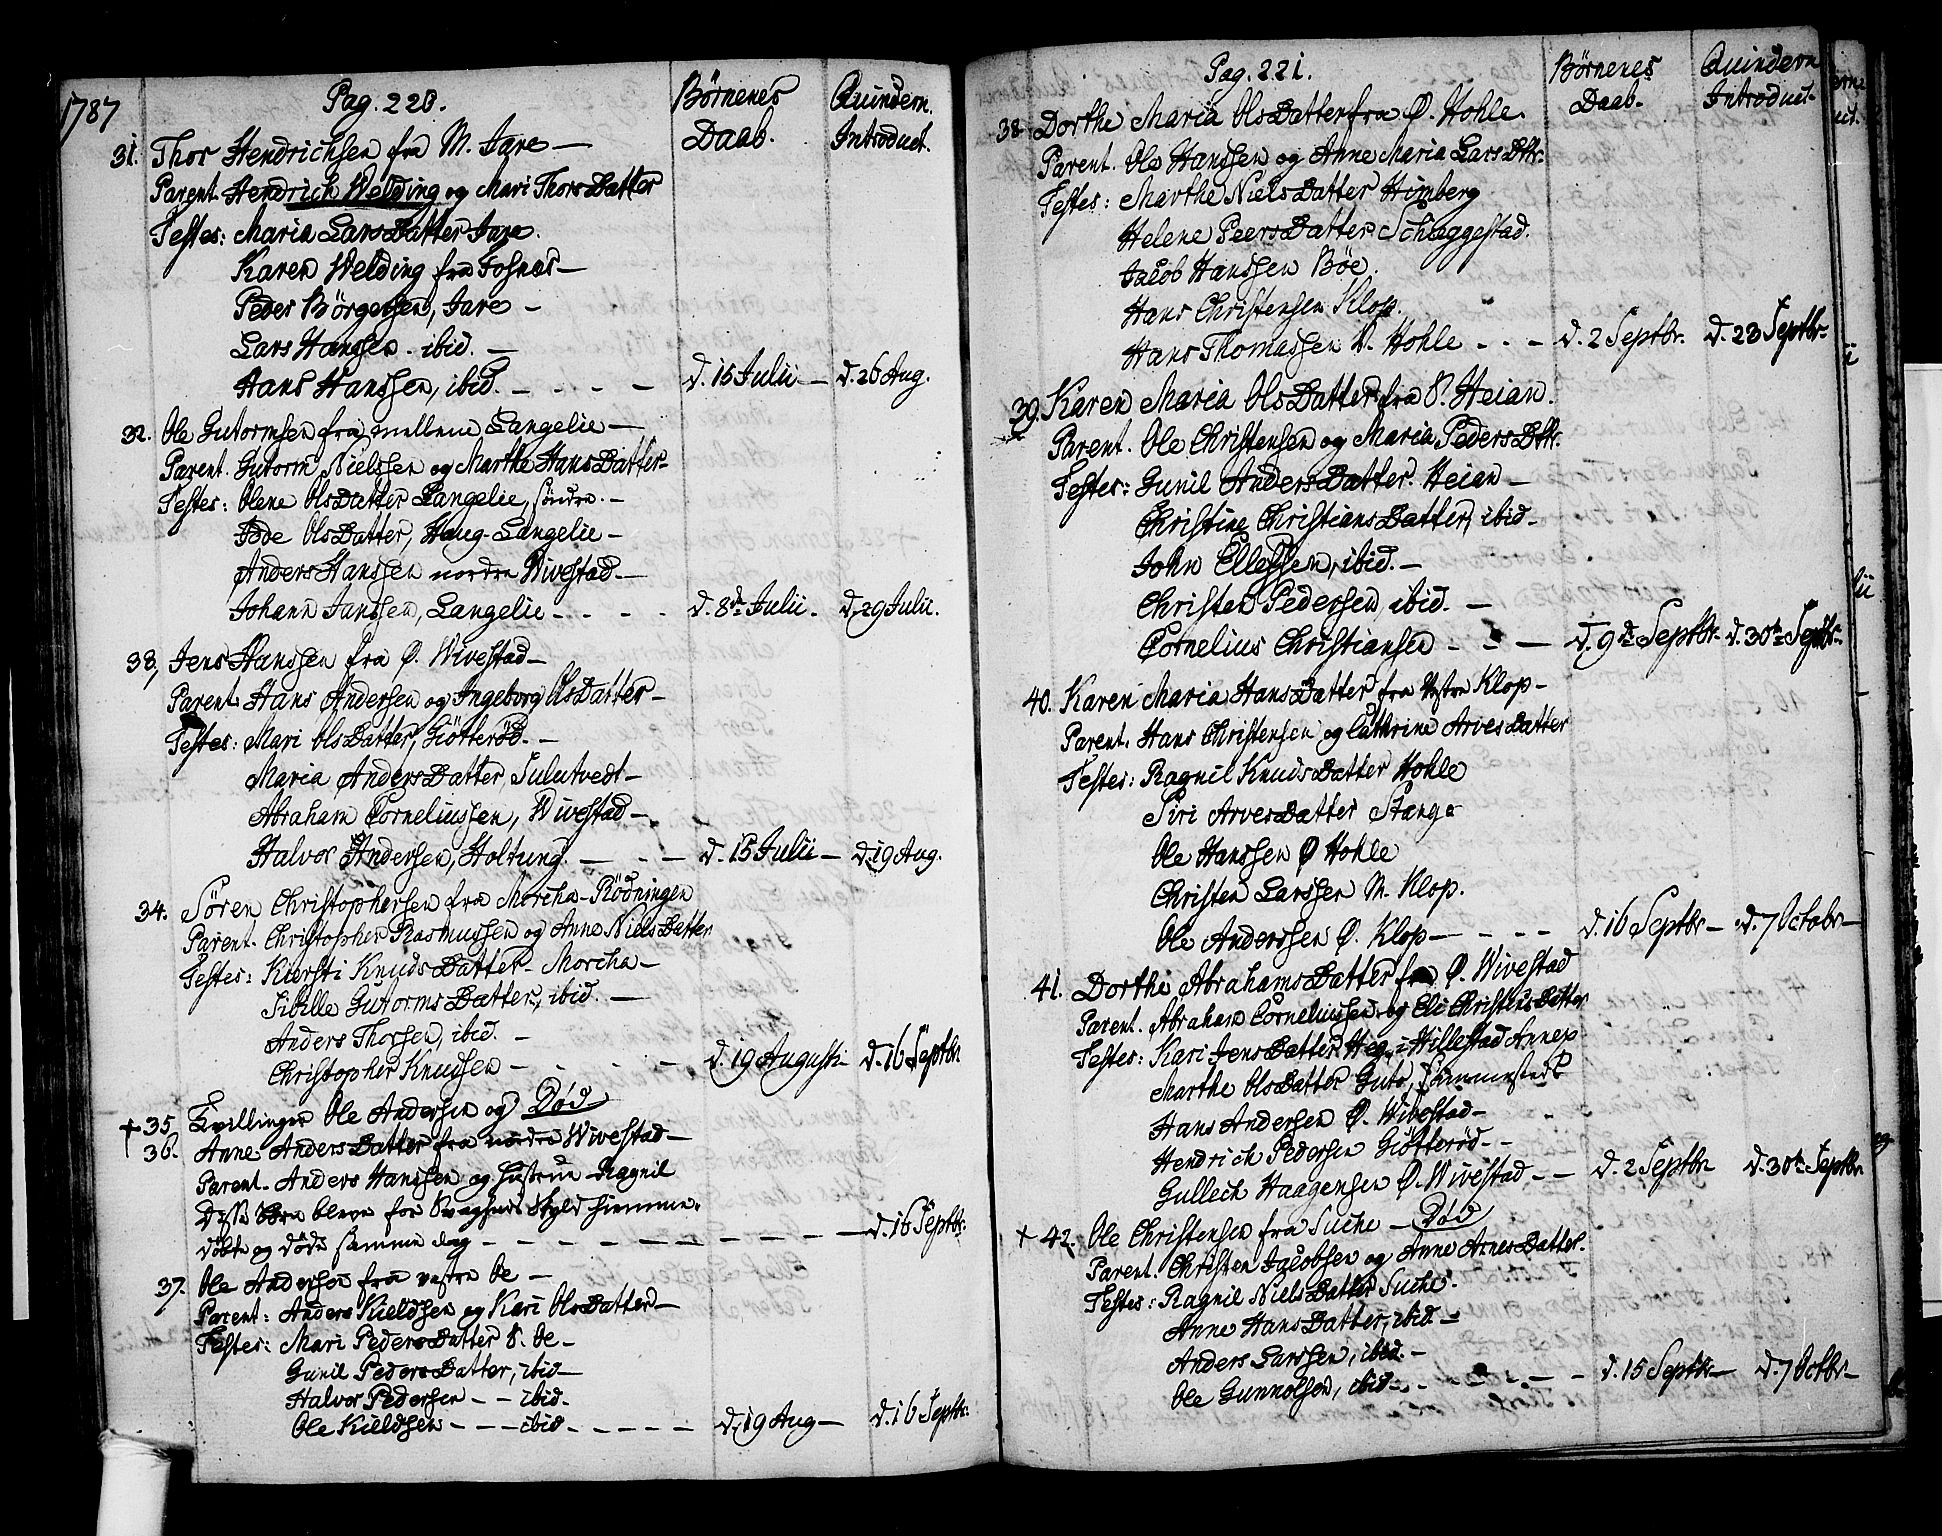 1787
Pag. 220.
Börnenes Daab.
Quindern. Introduct.
31. Thor Hendrichsen fra M. Jare —
Parent. Hendrich Welding og Mari Thors Datter
Testes: Maria Lars Datter Jare.
Karen Welding fra Fosnæs —
Peder Börgersen, Jare —
Lars Hanssen. ibid. —
Hans Hanssen, ibid. — — — — d. 15 Julii — d. 26 Aug.
32. Ole Gutormsen fra mellem Langelie —
Parent. Gutorm Nielssen og Marthe Hans Datter —
Testes: Olene Ols Datter Langelie, söndre. —
Tode Ols Datter, Haug-Langelie —
Anders Hanssen nordre Wivestad —
Johann Janssen, Langelie — — — — d. 8de Julii. d. 29 Julii.
33, Jens Hanssen fra Ø. Wivestad —
Parent. Hans Andersen og Ingeborg Ols Datter —
Testes: Mari Ols Datter, Giötteröd. —
Maria Anders Datter, Sulutvedt —
Abraham Corneliussen, Wivestad —
Halvor Andersen, Holtung. — — — d. 15 Julii — d. 19 Aug.
34. Sören Christophersen fra Morcha-Rödningen
Parent. Christopher Rasmussen og Anne Niels Datter
Testes: Kiersti Knuds Datter — Morcha —
Sibille Gutorms Datter, ibid. —
Anders Thorsen, ibid. —
Christopher Knudsen — — — — d. 19 Augusti d. 16 Septbr
+ 35 Tvillinger Ole Andersen og Död
36. Anne Anders Datter fra nordre Wivestad —
Parent. Anders Hanssen og Hustrue Ragnil
Disse Börn bleve for Svagheds Skyld hiemme-
döbte og döde samme dag — — — — — — d. 16 Septbr:
37. Ole Andersen fra vestre Oe —
Parent: Anders Kieldsen og Kari Ols Datter —
Testes: Mari Peders Datter V. Oe —
Gunil Peders Datter, ibid —
Halvor Pedersen — — ibid. —
Ole Kieldsen — — — ibid — — — — — d. 19 Aug — d. 16 Septbr:
Pag. 221.
Börnenes Daab.
Quindern Introduct.
38 Dorthe Maria Ols Datter fra Ø. Hohle.
Parent. Ole Hanssen og Anne Maria Lars Dttr.
Testes: Marthe Niels Datter Himberg
Helene Peers Datter Schæggestad.
Jacob Hanssen Böe.
Hans Christensen Klop.
Hans Thomassen V. Hohle — — — d. 2 Septbr. d. 23 Septbr.
39. Karen Maria Ols Datter fra V. Heian.
Parent. Ole Christensen og Maria Peders Dttr.
Testes: Gunil Anders Datter. Heian —
Christine Christians Datter, ibid —
John Ellefsen, ibid. —
Christen Pedersen, ibid. —
Cornelius Christiansen — — — d. 9de Septbr. d. 30te Septbr.
40. Karen Maria Hans Datter fra Vestre Klop —
Parent. Hans Christensen og Cathrine Arves Datter
Testes: Ragnil Knuds Datter Hohle
Siri Arves Datter Stange
Ole Hanssen Ø Hohle
Christen Larssen M. Klop.
Ole Anderssen Ø. Klop — — — — d. 16 Septbr — d. 7 Octobr —
41. Dorthe Abrahams Datter fra Ø. Wivestad
Parent. Abraham Corneliussen og Eli Christens Datter
Testes: Kari Jens Datter Heg i Hillestad Annex
Marthe Ols Datter
Hans Andersen Ø. Wivestad —
Hendrich Pedersen Giötteröd. —
Gullech Haagensen Ø. Wivestad — — d. 2 Septbr d. 30te Septbr.
+ 42. Ole Christensen fra Suche — Död
Parent. Christen Jacobsen og Anne Arnes Datter.
Testes: Ragnil Niels Datter Suche.
Anne Hans Datter, ibid —
Anders Larssen, ibid. —
Ole Gunnolsen, ibid — — — — d. 15 Septbr — d. 7 Octbr —